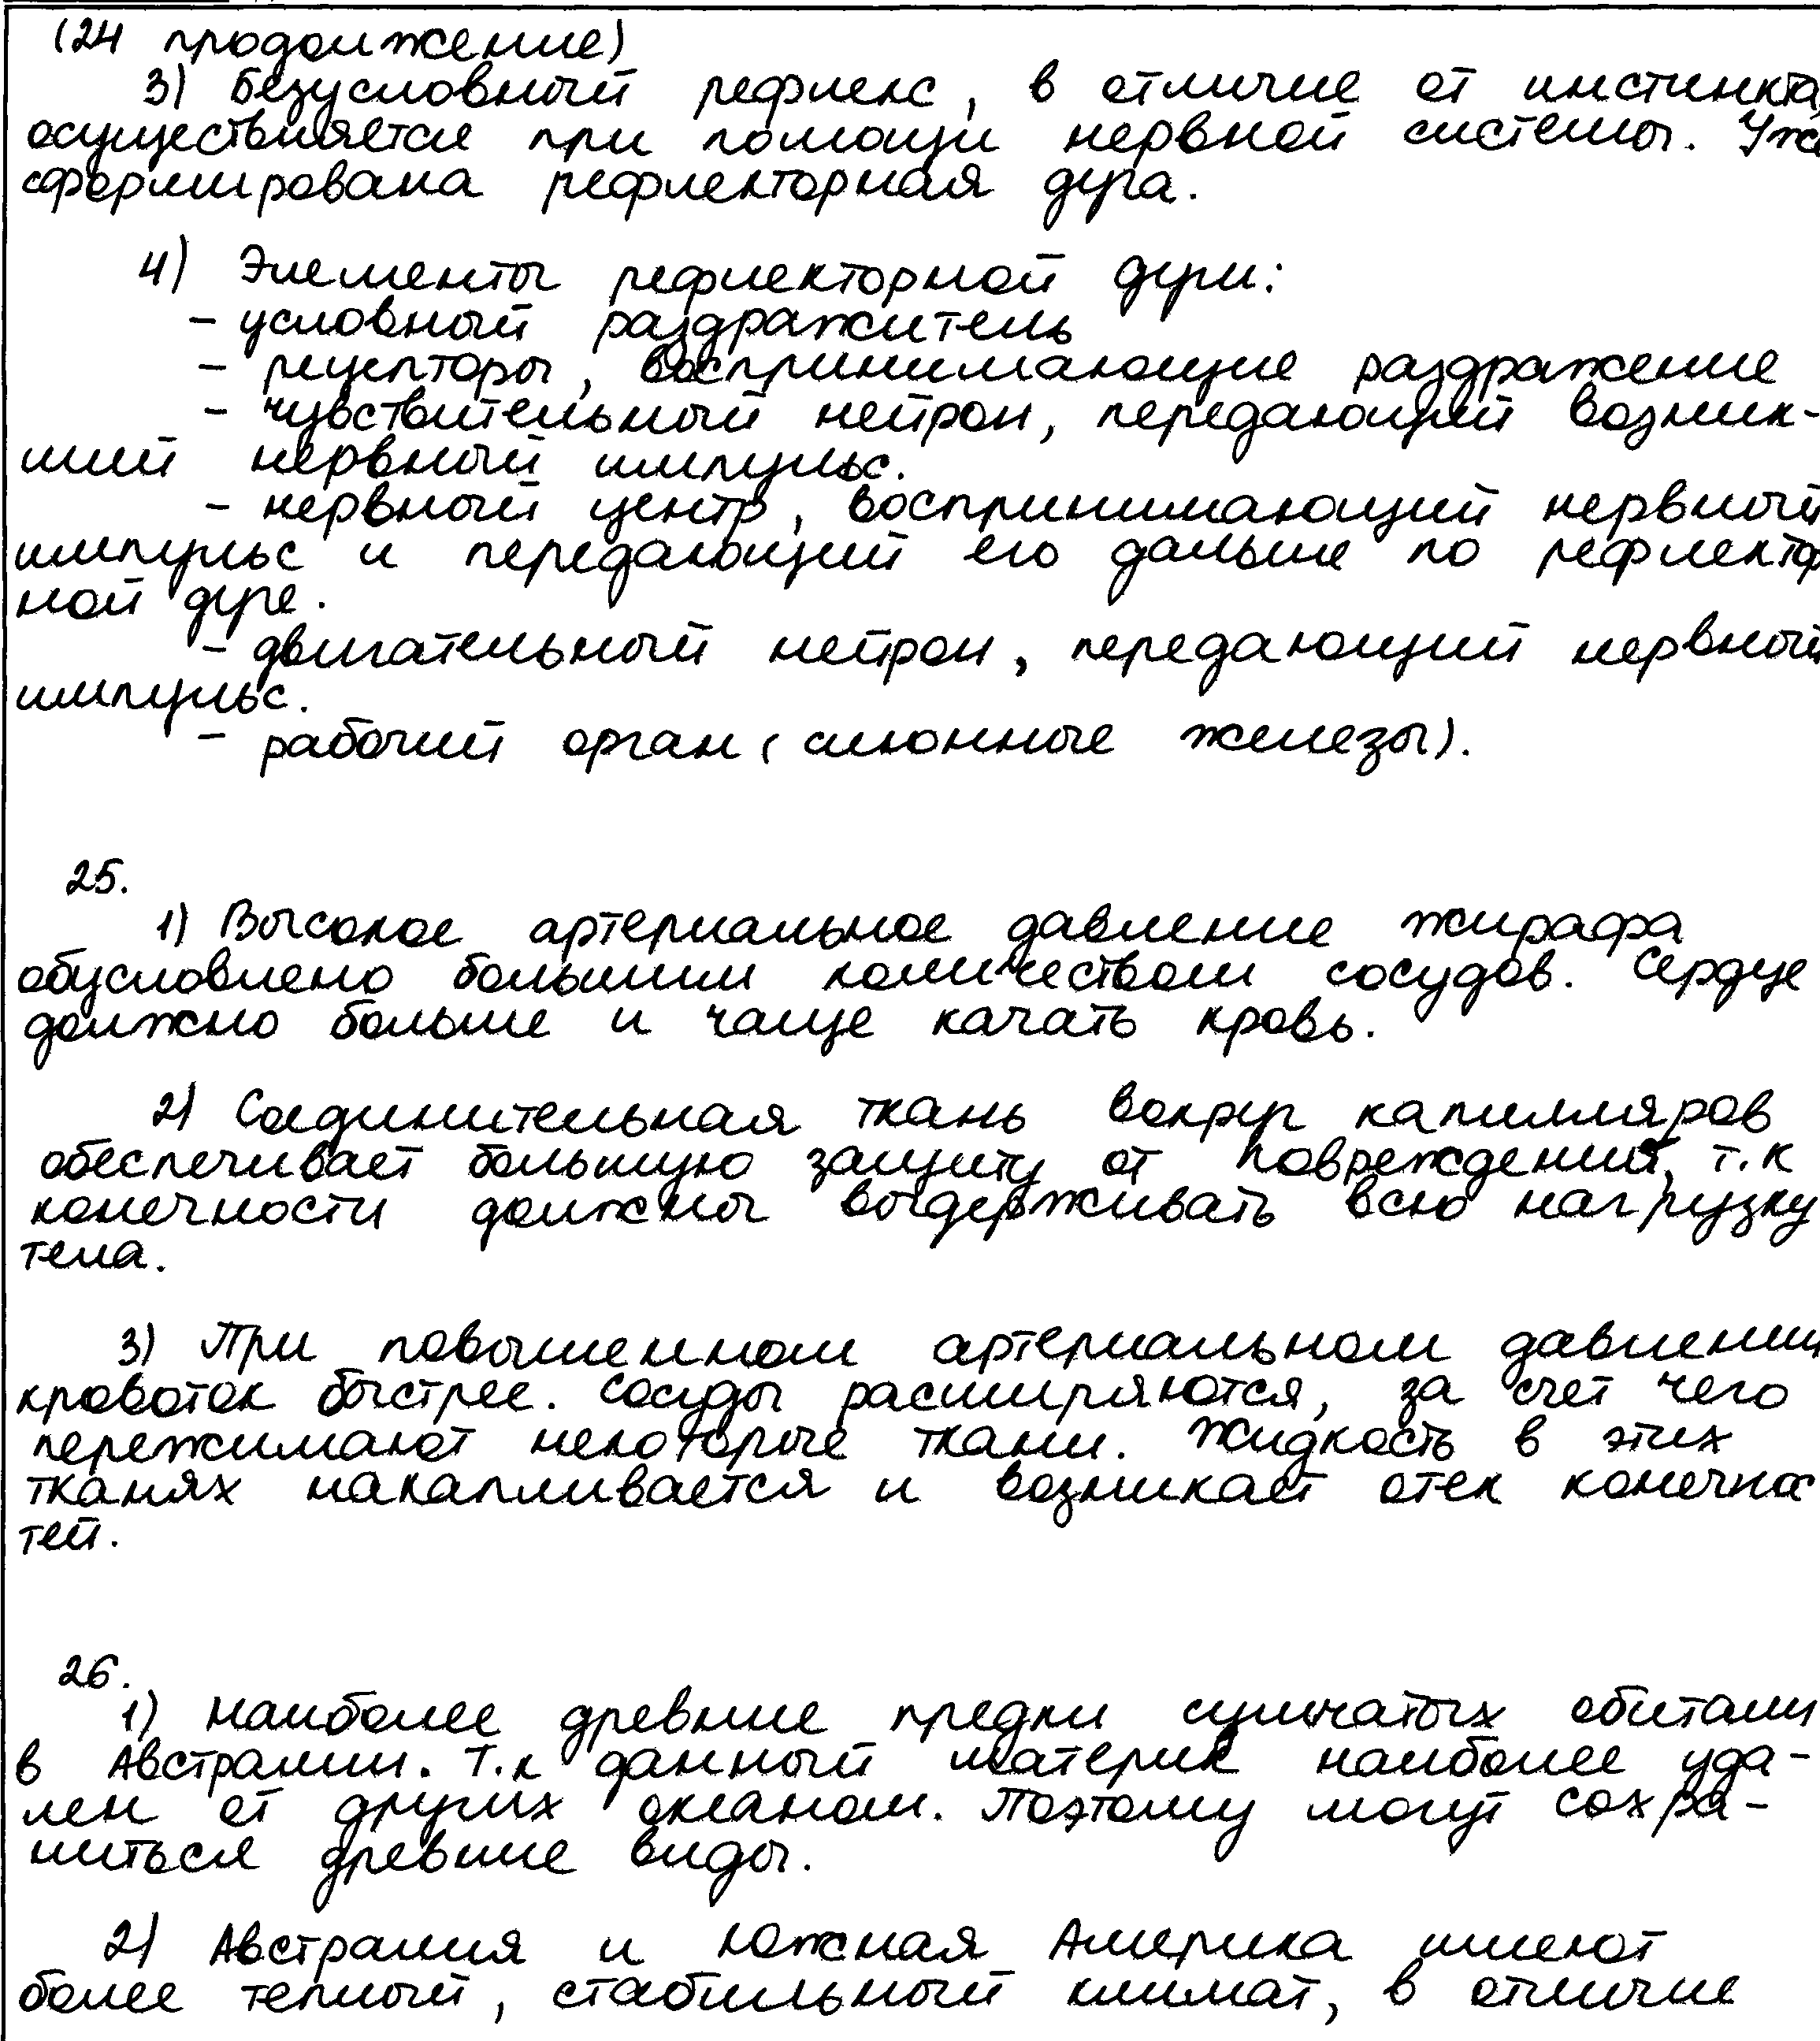 (24 продолжение)
3) Безусловный рефлекс, в отличие от инстинкта,
осуществляется при помощи нервной системы. Уже
сформирована рефлекторная дуга.
4) Элементы рефлекторной дуги:
- условный раздражитель
- рецепторы, воспринимающие раздражение
- чувствительный нейрон, передающий возник-
ший нервный импульс.
- нервный центр, воспринимающий нервный
импульс и передающий его дальше по рефлектор
ной дуге.
- двигательный нейрон, передающий нервный
импульс.
- рабочий орган (слюнные железы).
25.
1) Высокое артериальное давление жирафа
обусловлено большим количеством сосудов. Сердце
должно больше и чаще качать кровь.
2) Соединительная ткань вокруг капилляров
обеспечивает большую защиту от повреждений, т.к
конечности должны выдерживать всю нагрузку
тела.
3) При повышенном артериальном давлении
кровоток быстрее. Сосуды расширяются, за счет чего
пережимают некоторые ткани. Жидкость в этих
тканях накапливается и возникает отек конечнос
тей.
26.
1) Наиболее древние предки сумчатых обитали
в Австралии. Т.к данный материк наиболее уда-
лен от других океаном. Поэтому могут сохра-
ниться древние виды.
2) Австралия и Южная Америка имеют
более теплый, стабильный климат, в отличие